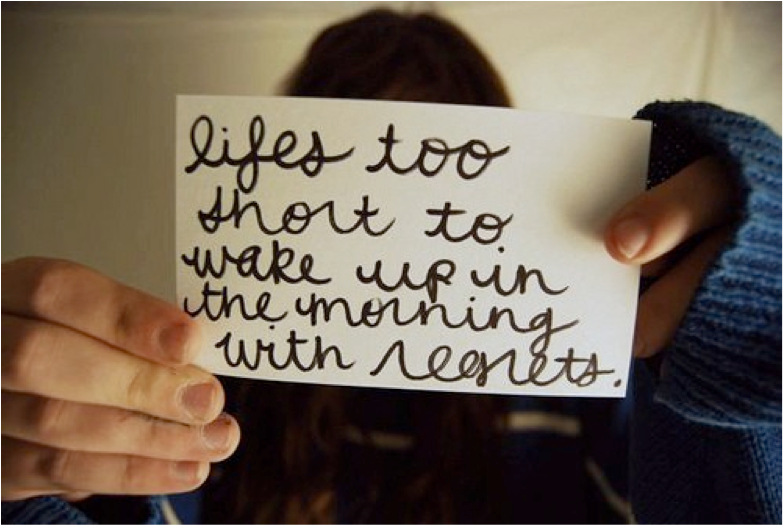 lifes too
short to
wake up in
the morning
with regrets.